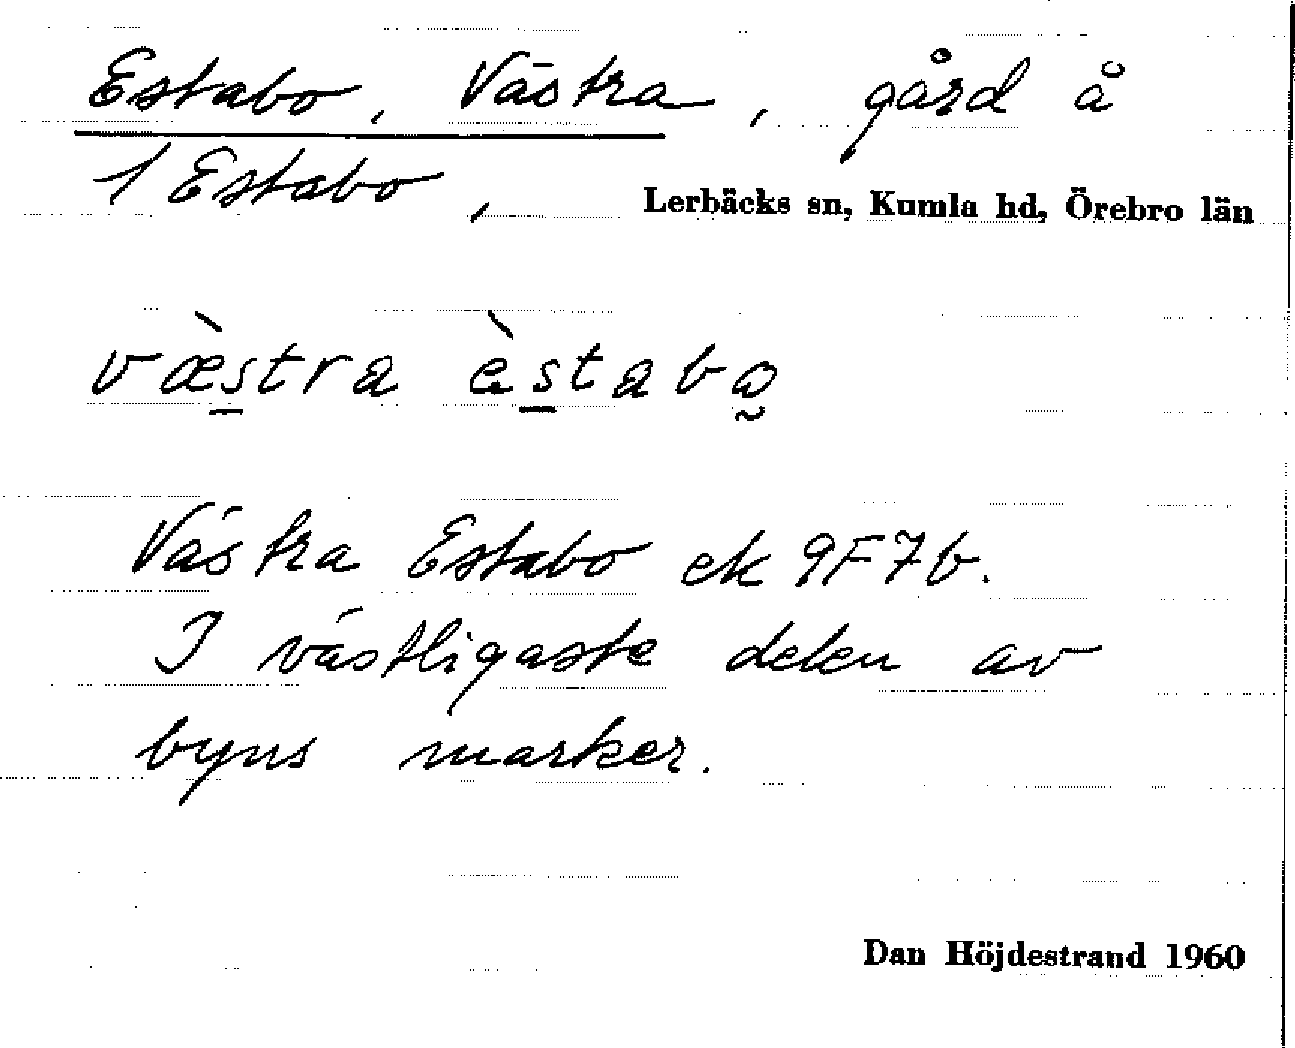 Estabo, Västra, gård å
1 Estabo, Lerbäcks sn, Kumla hd, Örebro län
væ̀s̲tra ès̲tabo̰
Västra Estabo ek 9F7b.
I västligaste delen av
byns marker.
Dan Höjdestrand 1960